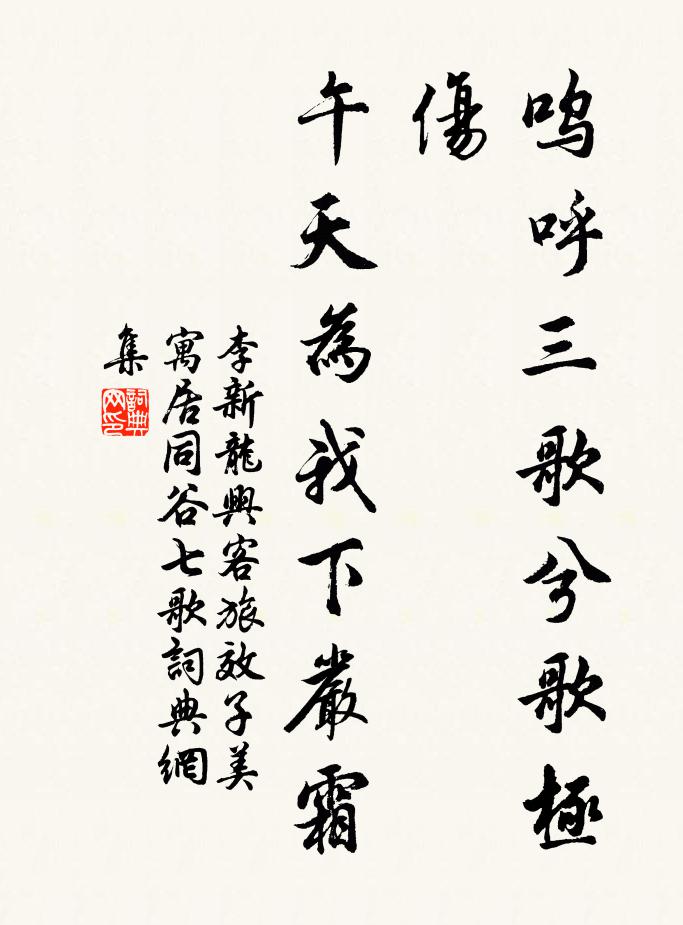 嗚呼三歌兮歌極
傷
午天為我下嚴霜
李新龍興客旅效子美
寓居同谷七歌詞典網
集
詞典
网印